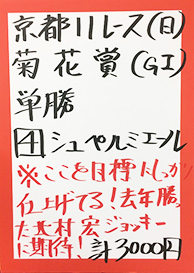 京都11レース(日)
菊花賞(GI)
単勝
④シュペルミエール
※ここを目標にしっかり
仕上げてる!去年勝っ
た北村宏ジョッキー
に期待! 計3000円